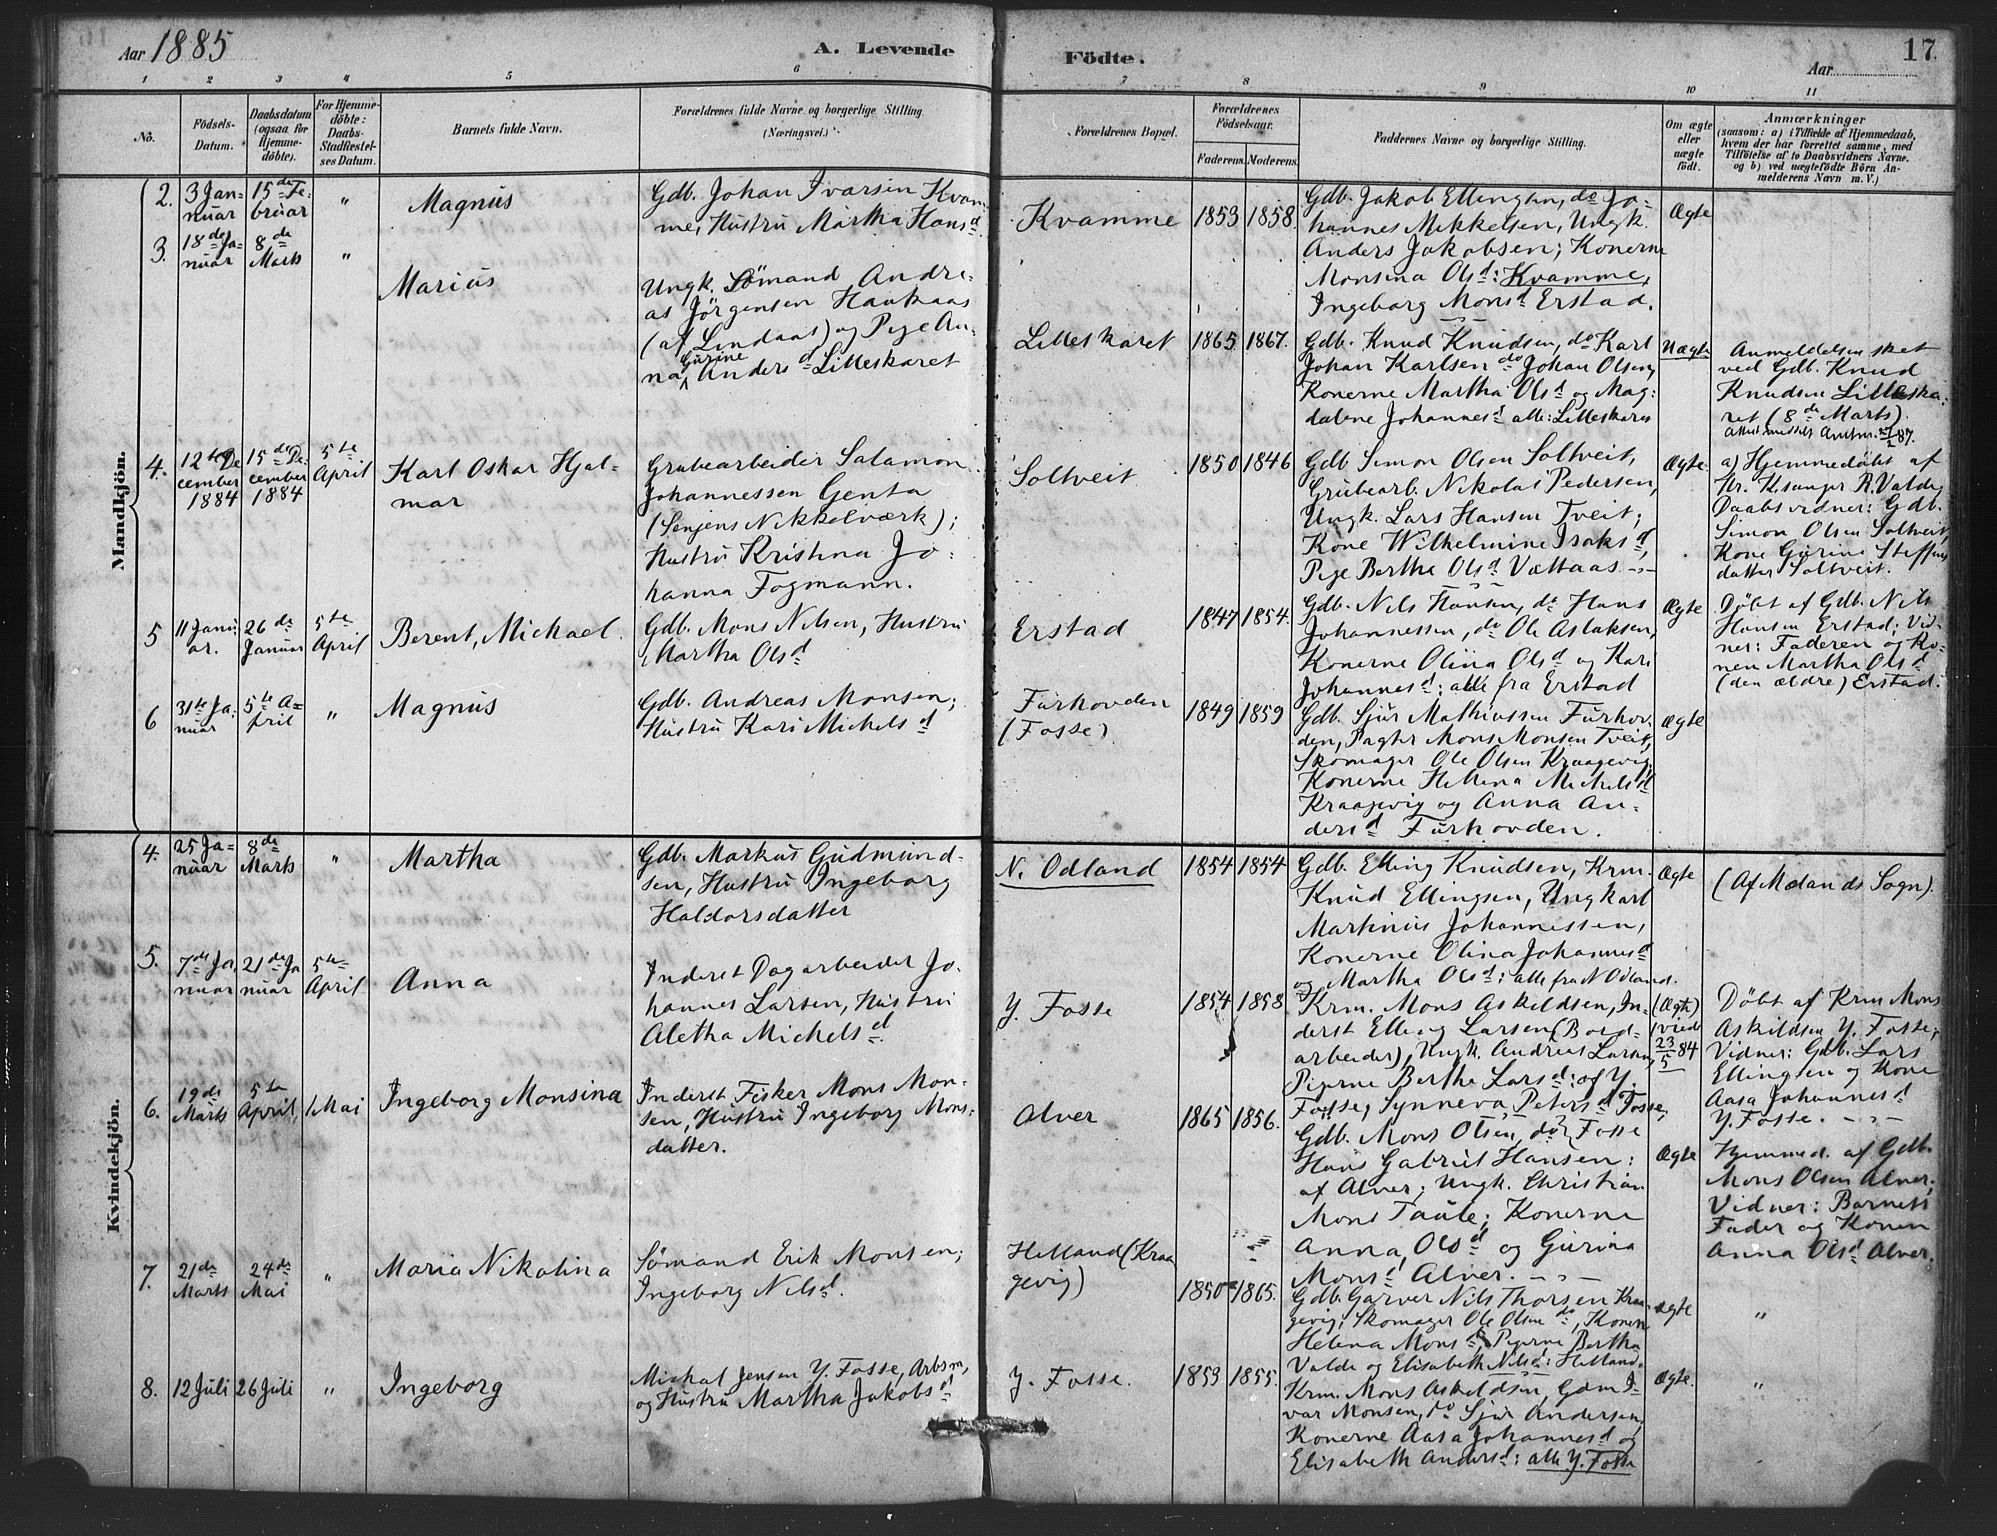 Aar 1885
A. Levende
Födte.
Aar
17.
1 2 3 4 5 6 7 8 9 10 11
No.
Födsels-
Datum.
Daabsdatum
(ogsaa for
Hjemme-
döbte).
For Hjemme-
döbte:
Daabs-
Stadfæstel-
ses Datum.
Barnets fulde Navn.
Forældrenes fulde Navne og borgerlige Stilling.
(Næringsvei.)
Forældrenes Bopæl.
Forældrenes
Födselsaar.
Faderens. Moderens.
Faddernes Navne og borgerlige Stilling.
Om ægte
eller
uægte
födt.
Anmærkninger
(saasom: a) i Tilfælde af Hjemmedaab,
hvem der har forrettet samme, med
Tilföielse af to Daabsvidners Navne.
og b) ved uægtefödte Börn An-
melderens Navn m. V.)
Mandkjön.
2.
3 Jan-
nuar
15de Fe-
bruar
"
Magnus
Gdb. Johan Ivarsen Kvam-
me, Hustru Martha Hansd
Kvamme
1853 1858.
Gdb. Jakob Ellingsen, do Jo-
hannes Mikkelsen, Ungk.
Anders Jakobsen; Konerne
Monsina Olsd: Kvamme,
Ingeborg Monsd Erstad.
Ægte
3.
18de Ja-
nuar
8de
Marts
"
Marius
Ungk. Sømand Andre-
as Jörgensen Haukaas
(af Lindaas) og Pige An-
na Gurine Andersd Lilleskaret
Lilleskaret
1865. 1867.
Gdb. Knud Knudsen, do Karl
Johan Karlsen do Johan Olsen,
Konerne Martha Olsd og Mag-
dalene Johannesd alle: Lilleskaret
Uægte
Anmeldelsen sket
ved Gdb. Knud
Knudsen Lilleska-
ret (8de Marts).
4.
12te De
cember
1884
15de De-
cember
1884
5te
April
Karl Oskar Hjal-
mar
Grubearbeider Salamon
Johannessen Genta
(Senjens Nikkelværk);
Hustru Kristina Jo-
hanna Fogmann.
Soltveit
1850 1846
Gdb. Simon Olsen Soltveit,
Grubearb. Nikolai Pedersen,
Ungk. Lars Hansen Tveit;
Kone Wilhelmine Isaksd,
Pige Berthe Olsd Vættaas
Ægte
a) Hjemmedøbt af
Kr. Kirksanger R. Valde,
Daabsvidner: Gdb.
Simon Olsen Soltveit,
Kone Gurine Steffens
datter Soltveit.
5
11 Janu-
ar.
26de
Januar
5te
April
Berent, Michael.
Gdb. Mons Nilsen, Hustru
Martha Olsd
Erstad
1847 1854.
Gdb. Nils Hansen, do Hans
Johannessen, do Ole Aslaksen,
Konerne Olina Olsd og Kari
Johannesd: alle fra Erstad
Ægte
Døbt af Gdb. Nils
Hansen Erstad; Vid-
ner: Faderen og Ko-
nen Martha Olsd
(den ældre) Erstad.
6
31te Ja-
nuar
5te A-
pril
"
Magnus
Gdb. Andreas Monsen;
Hustru Kari Michelsd
Furhovden
(Fosse)
1849 1859
Gdb. Sjur Mathiassen Furhov-
den, Pagter Mons Monsen Tveit,
Skomager Ole Olsen Kraagevig;
Konerne Hellena Michelsd
Kraagevig og Anna An-
dersd Furhovden.
Ægte
Kvindekjön.
4.
25 Ja-
nuar
8de
Marts
"
Martha
Gdb. Markus Gudmund-
sen, Hustru Ingeborg
Haldorsdatter
N. Odland
1854 1854
Gdb. Elling Knudsen, Krm.
Knud Ellingsen, Ungkarl
Martinus Johannessen,
Konerne Olina Johannesd
og Martha Olsd: alle fra N. Odland.
Ægte
(Af Mælands Sogn).
5.
7de Ja-
nuar
21de Ja
nuar
5te
April
Anna
Inderst Dagarbeider Jo-
hannes Larsen, Hustru
Aletha Michelsd.
Y. Fosse
1854 1858
Krm. Mons Askeldsen, In-
derst Elling Larsen (Bord-
arbeider), Ungk. Andreas Larsen,
Pigerne Berthe Larsd: af Y.
Fosse, Synneva Petersd Fosse,
(Ægte)
viede
23/5 84
Døbt af Krm Mons
Askildsen Y. Fosse,
Vidner: Gdb. Lars
Ellingsen og Kone
Aasa Johannesd
Y. Fosse.
6.
19de
Marts
5te
April,
1 Mai
Ingeborg Monsina
Inderst Fisker Mons Mon-
sen, Hustru Ingeborg Mons-
datter.
Alver
1865 1856.
Gdb. Mons Olsen, do Fosse
Hans Gabriel Hansen:
af Alver; Ungk. Christian
Mons Taule; Konerne
Anna Olsd og Gurina
Monsd Alver.
Ægte
Hjemmed. af Gdb.
Mons Olsen Alver,
Vidner: Barnets
Fader og Konen
Anna Olsd Alver.
7.
21de
Marts
24de
Mai
"
Maria Nikolina
Sømand Erik Monsen;
Ingeborg Nilsd.
Helland (Kraa
gevig)
1850 1865.
Gdb. Garver Nils Thorsen Kraa-
gevig; Skomager Ole Olsen do, Konerne
Helena Monsd, Pigerne Bertha
Valde og Elisabeth Nilsd: Helland.
Ægte
"
8.
12 Juli
26 Juli
"
Ingeborg
Michal Jensen Y. Fosse, Arbsm,
og Hustru Martha Jakobsd
Y. Fosse.
1853 1855.
Krm. Mons Askeldsen, Gdm I-
var Monsen, do Sjur Andersen,
Konerne Aasa Johannesd og
Elisabeth Andersd: alle Y. Fosse
Ægte.
"